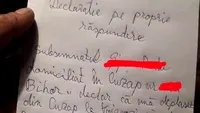 Declarație pe proprie
răspundere
Subsemnatul
domiciliat în Cuzap nr
Bihor declar că mă deplasez
din Cuzap la